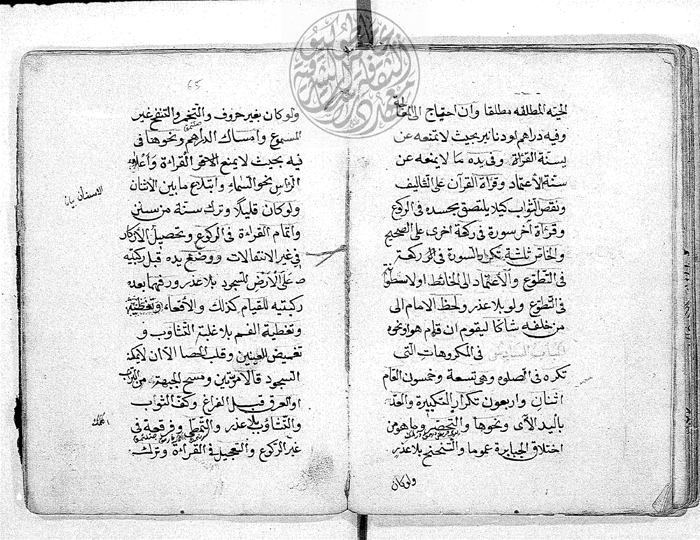 الحيته المطلقه مطلقا وان احتياج الى المعالجة
وفيه دراهم او دنانير بحيث لا تمنعه عن
سنة القراة وفي يده ما لا يمنعه عن
سنة الاعتماد وقراة القرآن على التاليف
ونقص الثواب كيلا يلتصق بجسده في الركوع
وقراءة آخر سورة في ركعة اخرى على الصحيح
تكرار السورة في ركعة
في التطوع والاعتماد الى الحائط او لاسطوا
في التطوع ولو بلا عذر ولحظ الامام الى
من خلفه شاكا ليقوم ان قام هو او نحوه
الباب السادس في المكروهات التى
تكره في الصلوه وهى تسعة وخمسون العام
اثنان واربعون تكرار التكبيرة والعد
باليد الآى ونحوها والتخصر وما هو من
اختلاق الجبابرة عموما والتنحنح بلا عذر
ولو كان
65
ولو كان بغير حروف والتنخم والتنفخ غير
المسموع وامساك الدراهم ونحوها في
فيه بحيث لا يمنع القراءة واعلاه
الراس نحو السماء وابتلاع ما بين الاسنان
ولو كان قليلا وترك سنة من سنن
واتمام القراءة في الركوع وتحصيل الاذكار
في غير الانتقالات ووضع يده قبل ركبتيه
على الارض للسجود بلا عذر ورفعهما بعد
ركبتيه للقيام كذلك والاقعاء
وتغطية الفم بلا غلبة التثاؤب و
تغميض العينين وقلب الحصا الا ان لا يمكنه
السجود ومسح الجبهة من التراب
او العرق قبل الفراغ وكف الثواب
والتثاؤب بلا عذر والتمطى وفرقعة في
غير الركوع والتعجيل في القراءة وترك